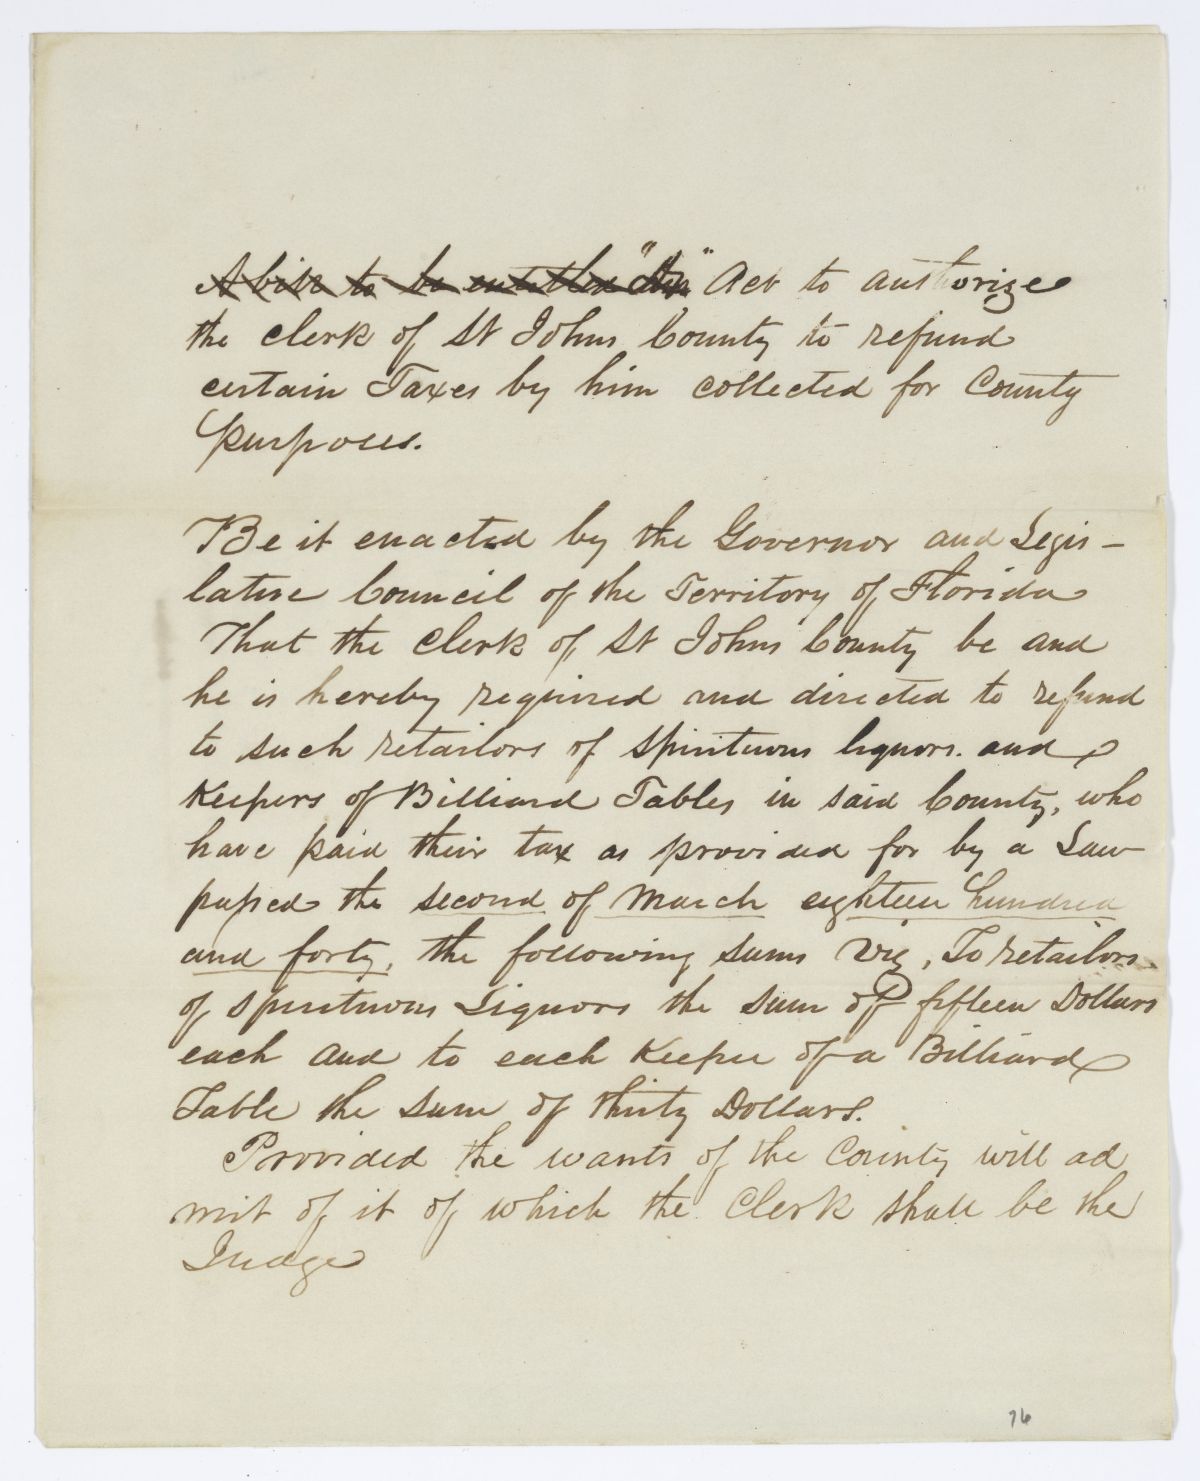 A bill to be entitled "An" Act to authorize
the Clerk of St Johns County to refund
certain Taxes by him collected for County
purposes.
Be it enacted by the Governor and Legis-
lative Council of the Territory of Florida
That the Clerk of St Johns County be and
he is hereby required and directed to refund
to such retailors of spirituous liquors. and
Keepers of Billiard Tables in said County, who
have paid their tax as provided for by a Law
passed the second of March eighteen hundred
and forty, the following sums viz, To retailors
of spirituous Liquors the sum of fifteen Dollars
each and to each Keeper of a Billiard
Table the sum of thirty Dollars.
Provided the wants of the County will ad
mit of it of which the Clerk shall be the
Judge
76